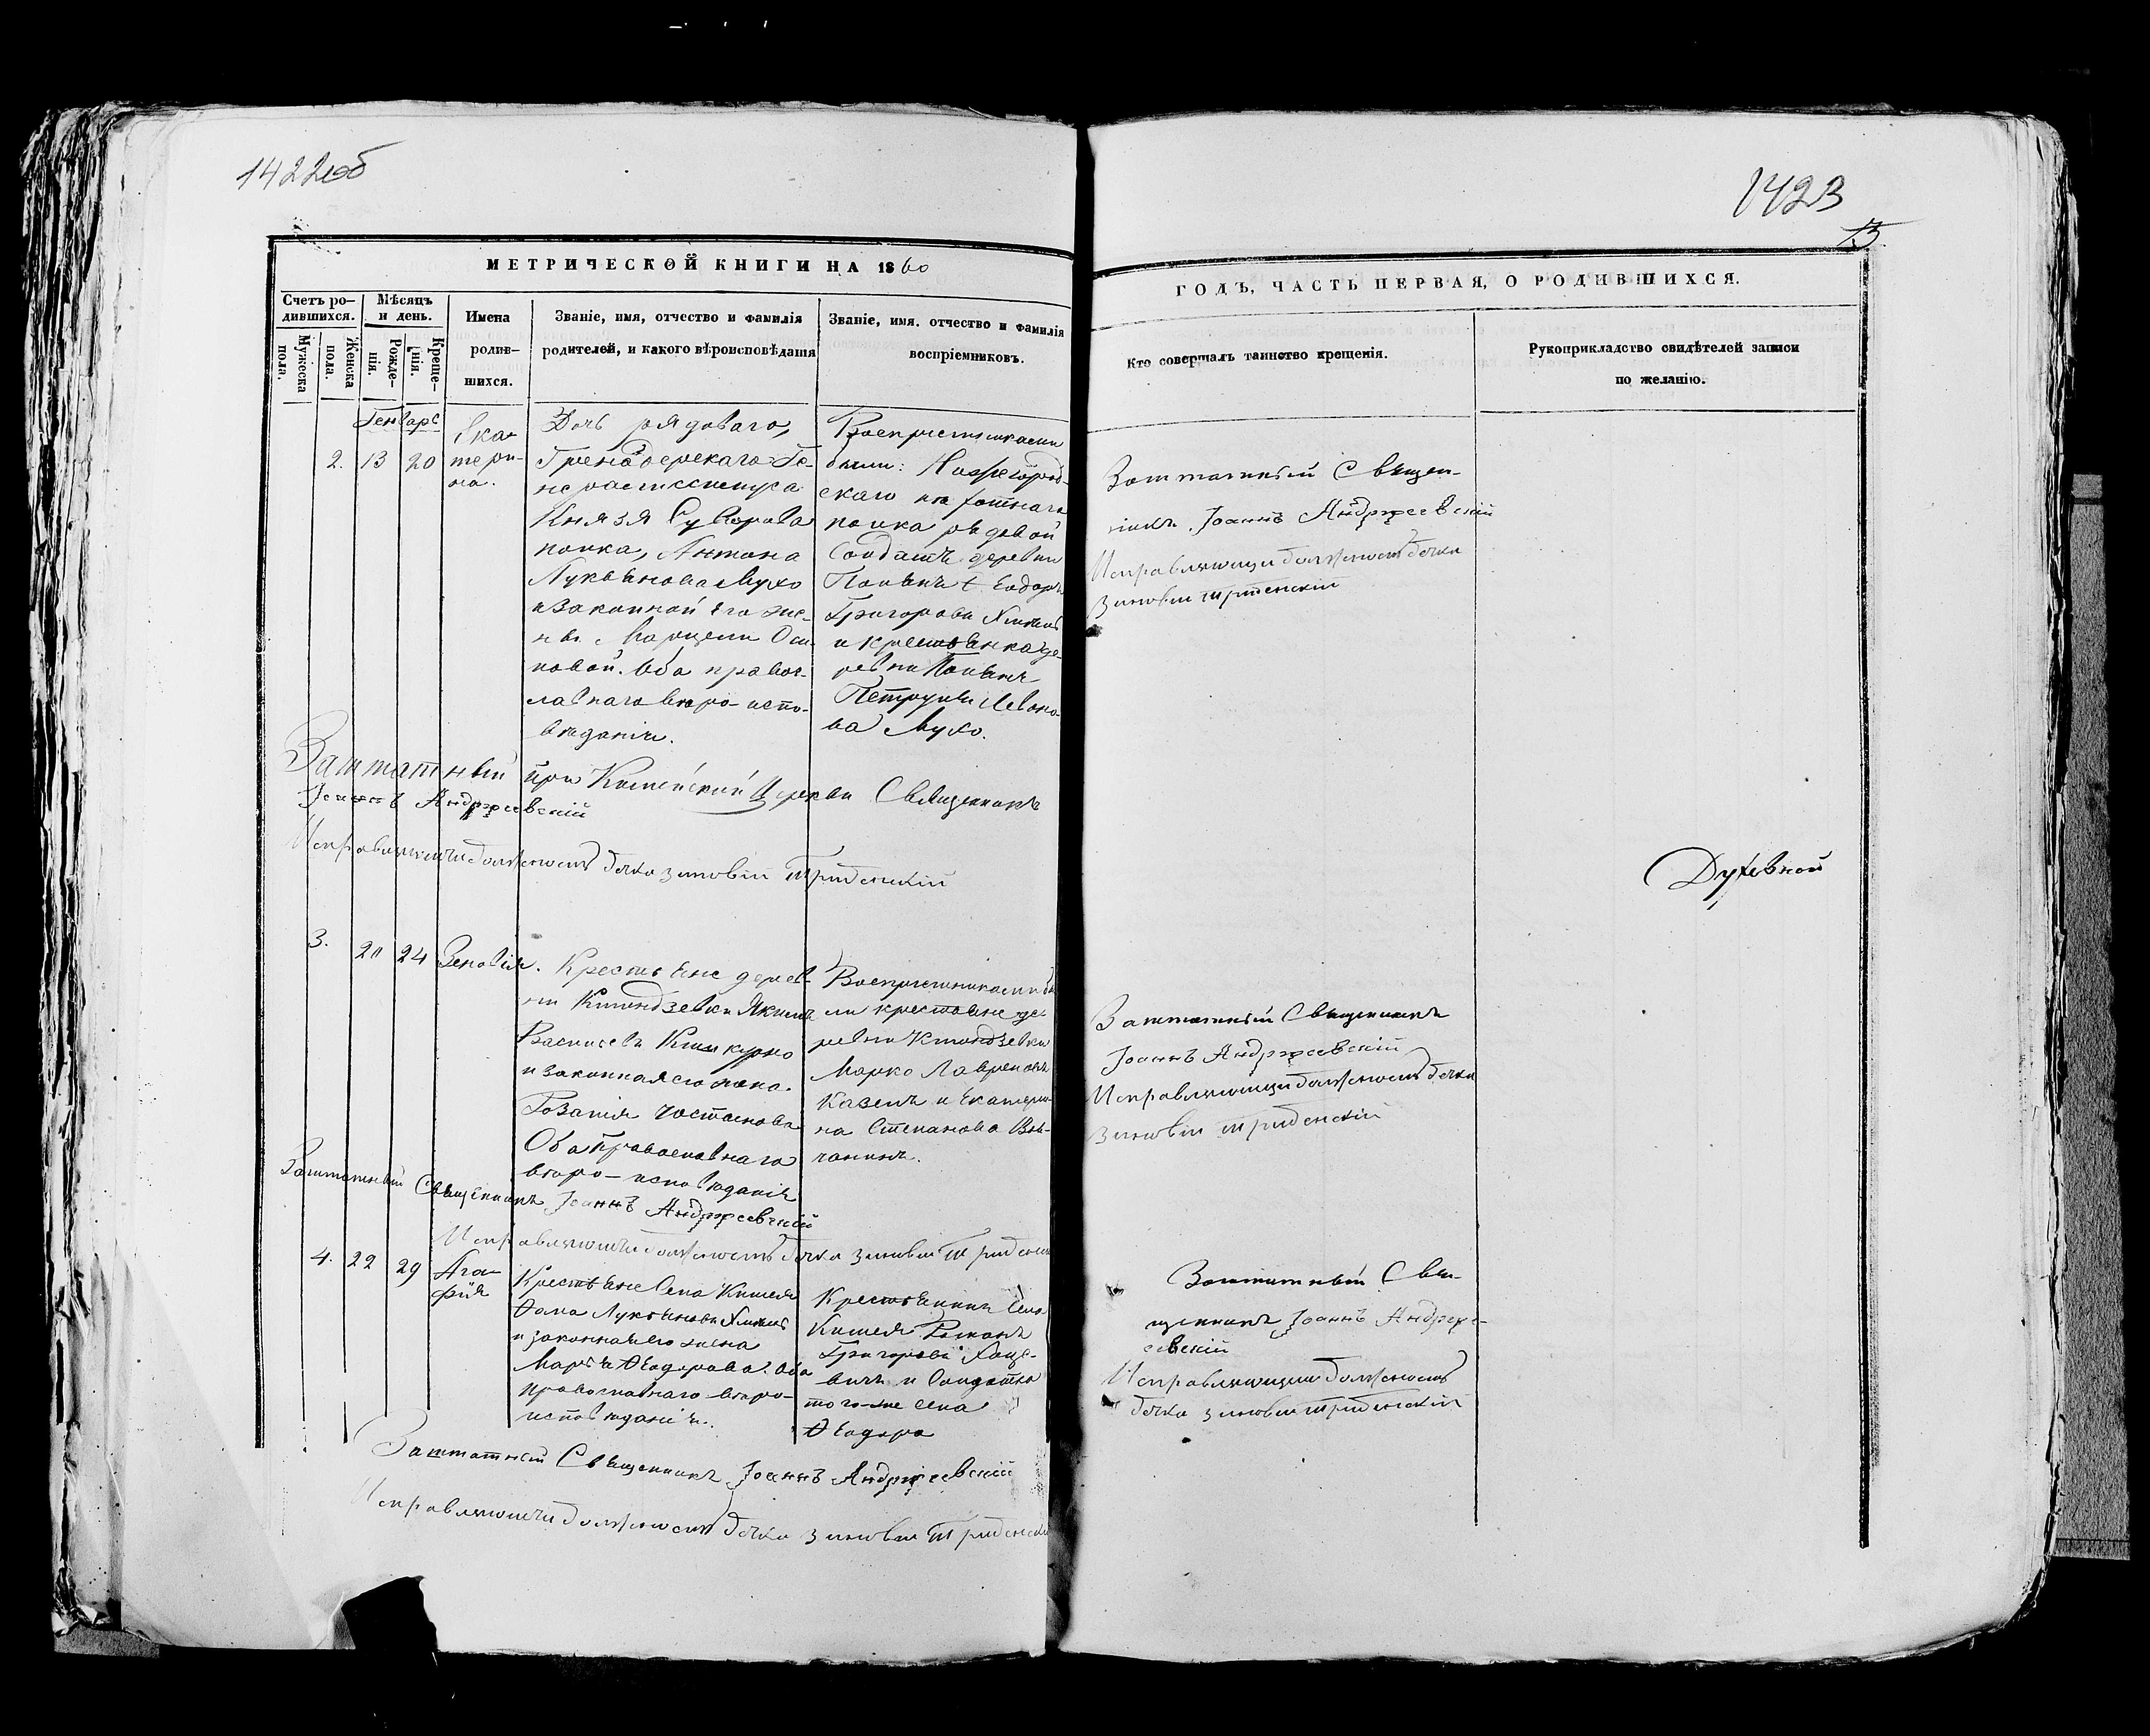 1422об
1423
13.
МЕТРИЧЕСКОЙ КНИГИ НА 1860
ГОДЪ, ЧАСТЬ ПЕРВАЯ, О РОДИВШИХСЯ.
Счетъ ро-
дившихся.
Мѣсяцъ
и день.
Мужеска
пола.
Женска
пола.
Рожде-
нія.
Креще-
нія.
Имена
родив-
шихся.
Званіе, имя, отчество и фамилія
родителей, и какого вѣроисповѣданія
Званіе, имя. отчество и фамилія
воспріемниковъ.
Кто совершалъ таинство крещенія.
Рукоприкладство свидѣтелей записи
по желанію.
Генварь
2. 13 20
Ека-
тери-
на.
Дочь рядоваго,
Гренадерскаго Ге-
нералиссимуса
Князя Суворова
полка, Антона
Лукьянова Мухо
и Законной его же-
ны Марцели Оси-
повой. Оба правос-
лавнаго вѣро-испо-
вѣданія.
Воспріемниками
были:
скаго пѣхотнаго
полка рядовой
Солдатъ деревни
Ѳеодоръ
Григорьевъ
и крестьянка де-
ревни
Петрунеля Левоно-
ва Мухо.
Заштатный Священ-
никъ Іоаннъ Андржеевскій
Исправляющій должность дьячка
Зиновій Триденскій
Заштатный при Кошейской Церкви Священникъ
Іоаннъ Андржеевскій
Исправляющій должность дьячка Зиновій Триденскій
Духовной
3. 20 24 Зеновія.
Крестьяне дерев-
ни Клиндзевки Якимъ
Васильевъ
и законная его жена
Розалія
Оба Православнаго
вѣро-исповѣданія
Воспріемниками бы
ли крестьяне де
ревни Клиндзевки
Марко Лавреновъ
Казелъ и Екатери-
на Степанова
Заштатный Священникъ
Іоаннъ Андржеевскій
Исправляющій должность дьячка
Зиновій Триденскій
Заштатный Священникъ Іоаннъ Андржеевскій
Исправляющій должность дьячка Зиновій Триденскій
4. 22 29
Ага-
фія
Крестьяне Села Кошеля
Ѳома Лукьяновъ
и законная его жена
Марья Ѳеодорова. Оба
православнаго вѣро-
исповѣданія.
Крестьянинъ Села
Кошеля Романъ
Григорьевъ
вичъ и Солдатка
того-же села
Ѳеодора
Заштатный Свя-
щенникъ Іоаннъ Андрже-
евскій
Исправляющій должность
дьячка Зиновій Триденскій
Заштатный Священникъ Іоаннъ Андржеевскій
Исправляющій должность дьячка Зиновій Триденскій